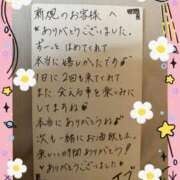 新規のお客様へ
ありがとうございました。
ずーっとほめてくれて
本当に嬉しかったです
1日に2回も来てくれて
また会える事を楽しみに
してますね
本当にありがとう
次も一緒にお酒飲もぅ
楽しい時間ありがとう！
ありがとうございました